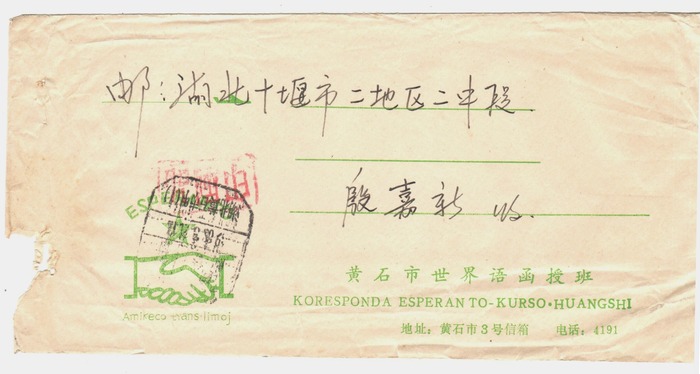 邮:湖北十堰市二地区二中段
殷嘉新 收.
Amikeco trans limoj
黄石市世界语函授班
KORESPONDA ESPERANTO-KURSO·HUANGSHI
地址: 黄石市3号信箱 电话: 4191